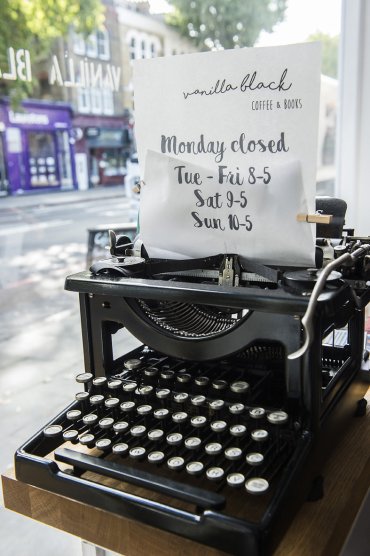 vanilla black
COFFEE & BOOKS
Monday closed
Tue - Fri 8-5
Sat 9-5
Sun 10-5
VANILLA BL